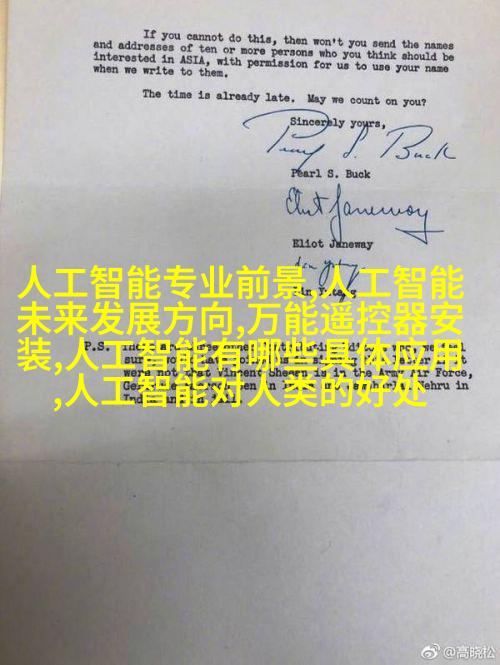 If you cannot do this, then won't you send the names
and addresses of ten or more persons who you think should be
interested in ASIA, with permission for us to use your name
when we write to them.
The time is already late. May we count on you?
Sincerely yours,
Pearl S. Buck
Pearl S. Buck
Eliot Janeway
Eliot Janeway
人工智能专业前景,人工智能
未来发展方向,万能遥控器安
装,人工智能有哪些具体应用
,人工智能对人类的好处
P.S.
were not
Vincent Sheean is in the Army Air Force,
Nehru in
@高晓松